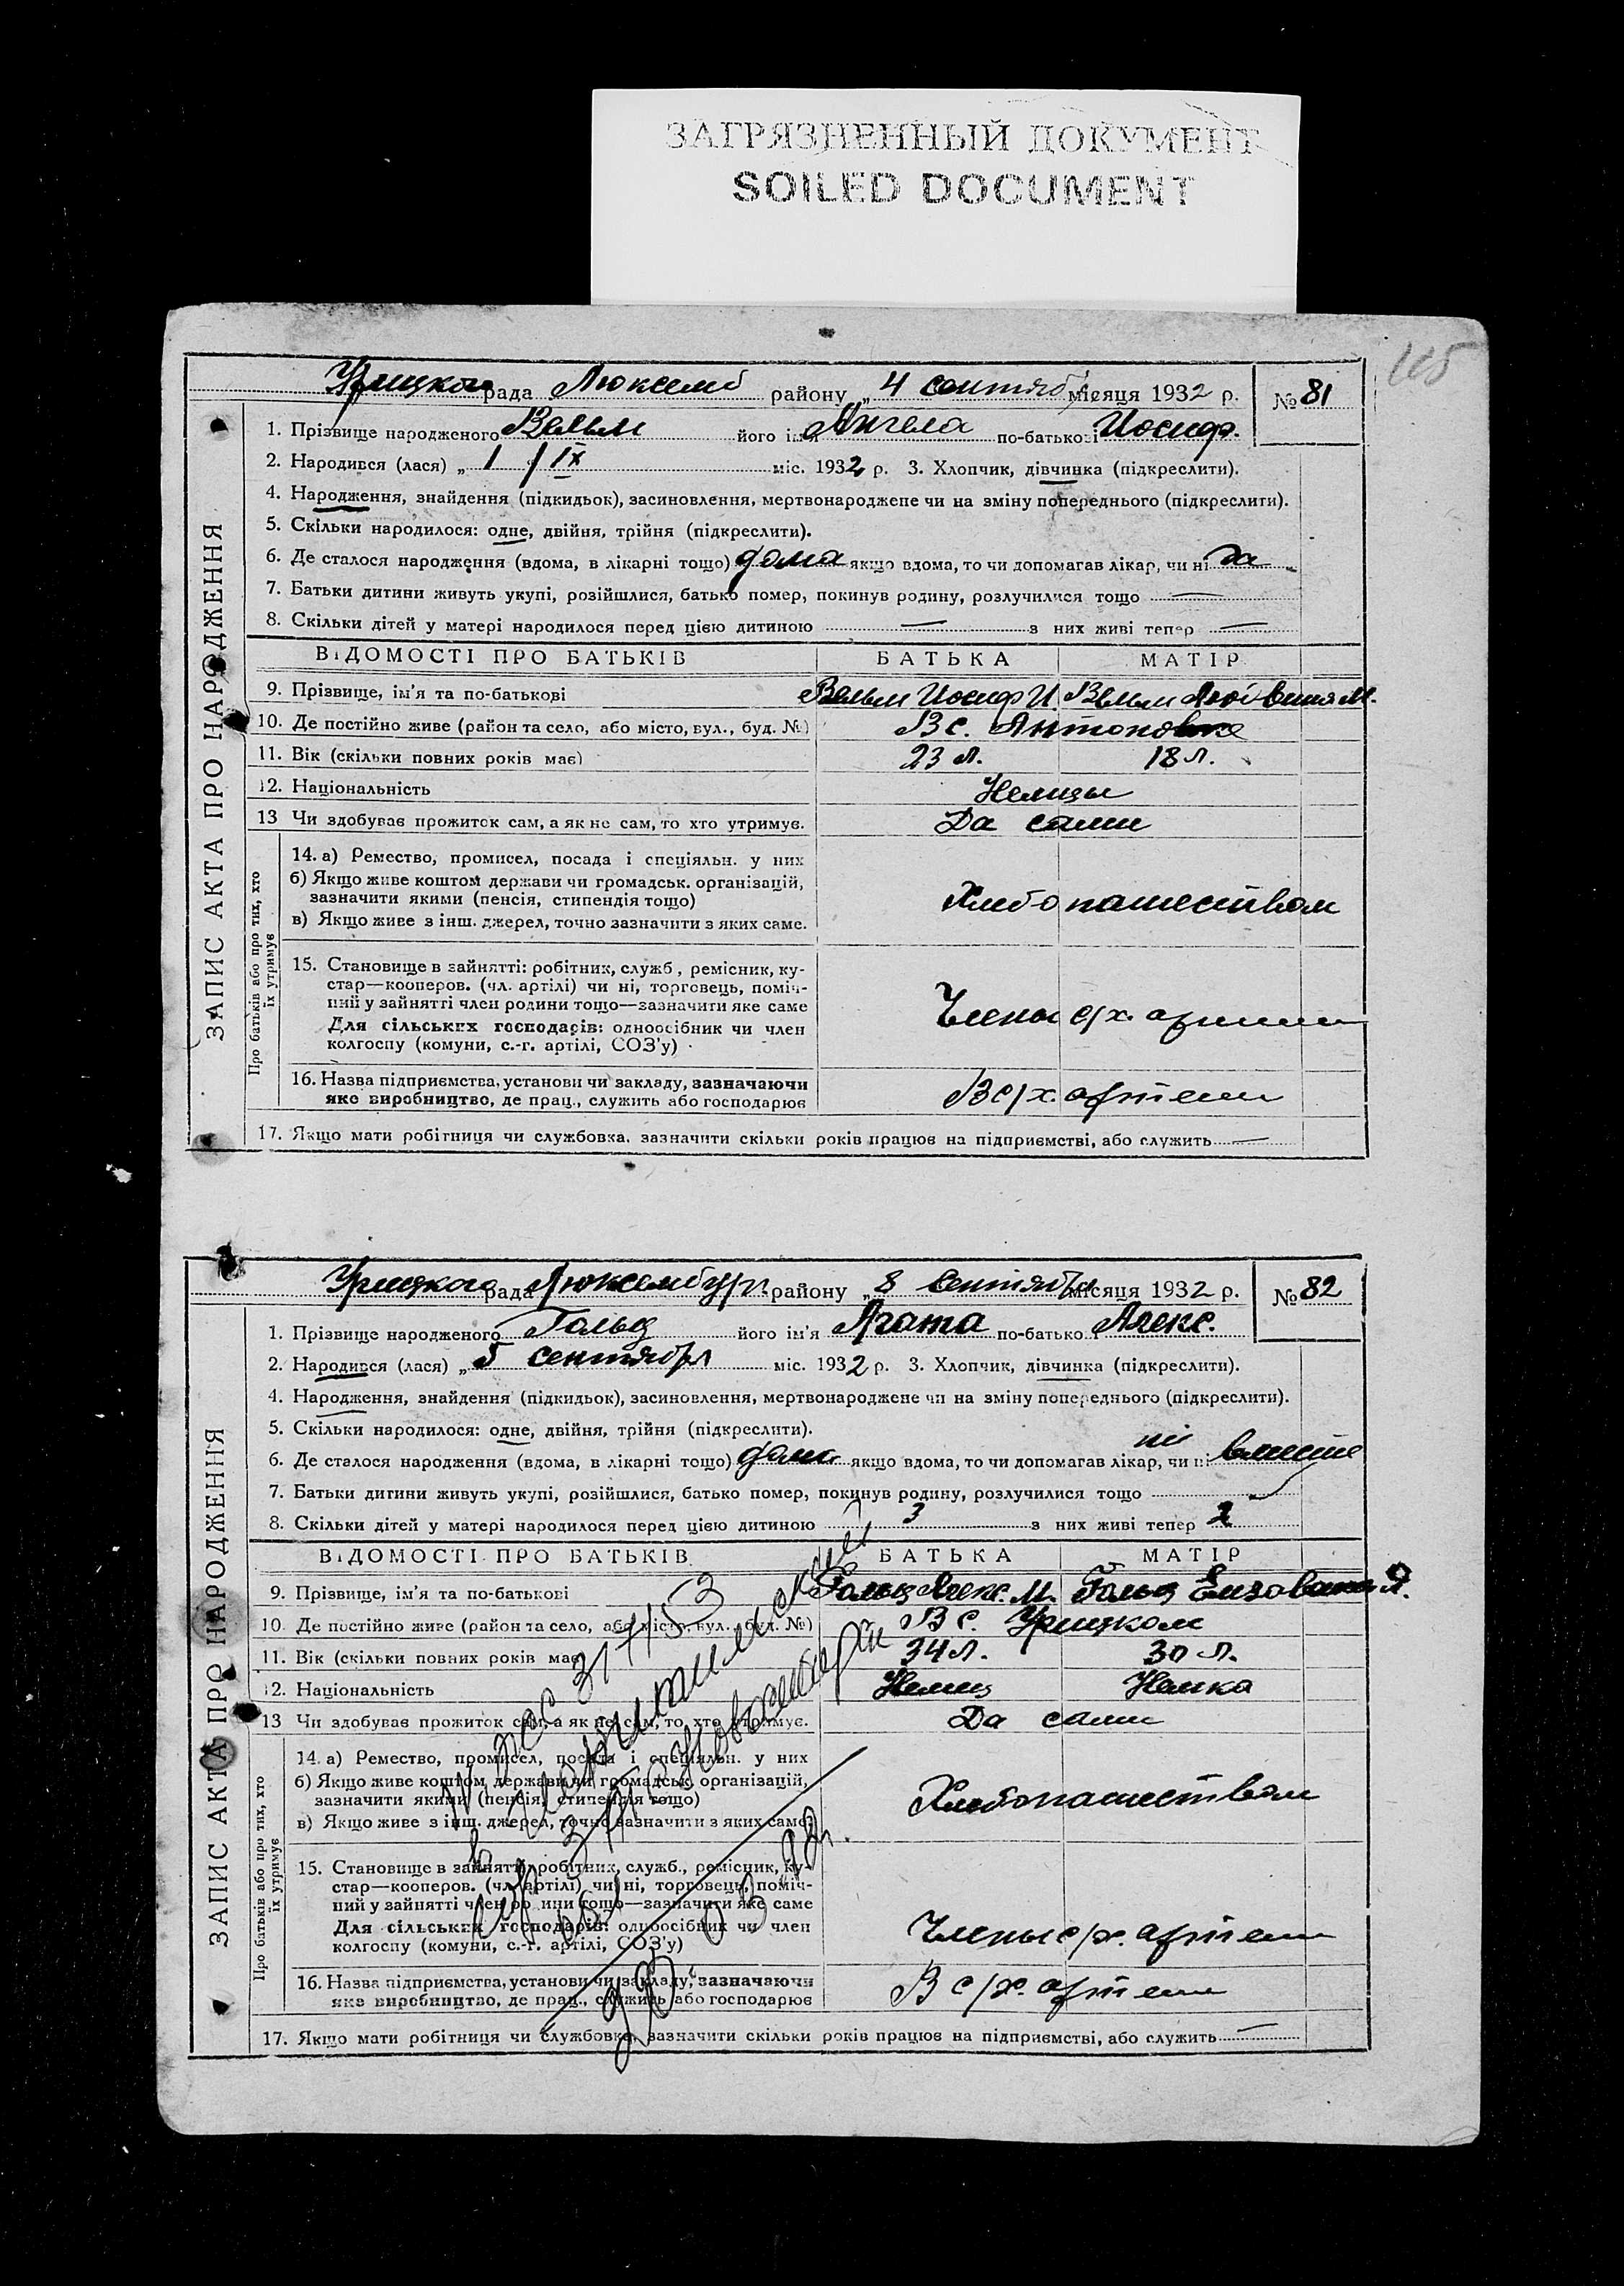 ЗАГРЯЗНЕННЫЙ ДОКУМЕНТ
SOILED DOCUMENT
115
Урицкого рада Люксемб району „ 4 сентяб місяця 1932 р. № 81
ЗАПИС АКТА ПРО НАРОДЖЕННЯ
1. Прізвище народженого його ім'я Ангела по-батькові Иосиф.
2. Народився (лася) „ 1 / IX міс. 1932 р. 3. Хлопчик, дівчинка (підкреслити).
4. Народження, знайдення (підкидьок), засиновлення, мертвонароджене чи на зміну попереднього (підкреслити).
5. Скільки народилося: одне, двійня, трійня (підкреслити).
6. Де сталося народження (вдома, в лікарні тощо) дома якщо вдома, то чи допомагав лікар, чи ні
7. Батьки дитини живуть укупі, розійшлися, батько помер, покинув родину, розлучилися тощо —
8. Скільки дітей у матері народилося перед цією дитиною — з них живі тепер —
ВІДОМОСТІ ПРО БАТЬКІВ БАТЬКА МАТІР
9. Прізвище, ім'я та по-батькові Иосиф И. М.
10. Де постійно живе (район та село, або місто, вул., буд. №) В с. Антоновке
11. Вік (скільки повних років має) 23 л. 18 л.
12. Національність Немцы
13 Чи здобував прожиток сам, а як не сам, то хто утримує. Да сами
Про батьків або про тих, хто їх утримує
14. а) Ремество, промисел, посада і спеціяльн. у них
б) Якщо живе коштом держави чи громадськ. організацій,
зазначити якими (пенсія, стипендія тощо)
в) Якщо живе з інш. джерел, точно зазначити з яких саме.
Хлебопашеством
15. Становище в зайнятті: робітник, служб., ремісник, ку-
стар—кооперов. (чл. артілі) чи ні, торговець, поміч-
ний у зайнятті член родини тощо—зазначити яке саме
Для сільських господарів: одноосібник чи член
колгоспу (комуни, с.-г. артілі, СОЗ'у)
Члены с/х. артели
16. Назва підприємства, установи чи закладу, зазначаючи
яке виробництво, де прац., служить або господарює
В с/х. артели
17. Якщо мати робітниця чи службовка, зазначити скільки років працює на підприємстві, або служить —
Урицкого рада Люксембург. району „ 8 сентября місяця 1932 р. № 82
ЗАПИС АКТА ПРО НАРОДЖЕННЯ
1. Прізвище народженого Гольц його ім'я Агата по-батькові Алекс.
2. Народився (лася) „ 5 сентября міс. 1932 р. 3. Хлопчик, дівчинка (підкреслити).
4. Народження, знайдення (підкидьок), засиновлення, мертвонароджене чи на зміну попереднього (підкреслити).
5. Скільки народилося: одне, двійня, трійня (підкреслити).
6. Де сталося народження (вдома, в лікарні тощо) дома якщо вдома, то чи допомагав лікар, чи ні ні вместе
7. Батьки дитини живуть укупі, розійшлися, батько помер, покинув родину, розлучилися тощо
8. Скільки дітей у матері народилося перед цією дитиною 3 з них живі тепер 2
ВІДОМОСТІ ПРО БАТЬКІВ БАТЬКА МАТІР
9. Прізвище, ім'я та по-батькові Гольц Алекс. М. Гольц Елизавета Я.
10. Де постійно живе (район та село, або місто, вул., буд. №) В с. Урицком
11. Вік (скільки повних років має 34 л. 30 л.
12. Національність Немец Немка
13 Чи здобував прожиток сам, а як не сам, то хто утримує. Да сами
Про батьків або про тих, хто їх утримує
14. а) Ремество, промисел, посада і спеціяльн. у них
б) Якщо живе коштом держави чи громадськ. організацій,
зазначити якими (пенсія, стипендія тощо)
в) Якщо живе з інш. джерел, точно зазначити з яких саме.
Хлебопашеством
15. Становище в зайнятті: робітник, служб., ремісник, ку-
стар—кооперов. (чл. артілі) чи ні, торговець, поміч-
ний у зайнятті член родини тощо—зазначити яке саме
Для сільських господарів: одноосібник чи член
колгоспу (комуни, с.-г. артілі, СОЗ'у)
Члены с/х. артели
16. Назва підприємства, установи чи закладу, зазначаючи
яке виробництво, де прац., служить або господарює
В с/х. артели
17. Якщо мати робітниця чи службовка, зазначити скільки років працює на підприємстві, або служить —